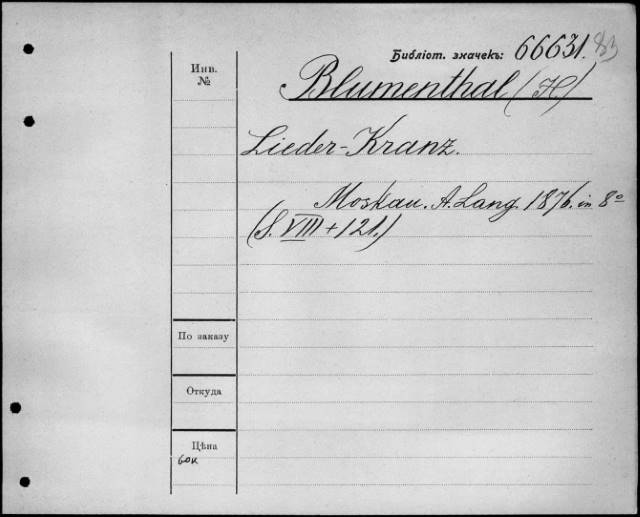 Библіот. значекъ: 66631. 83
Инв.
№
Blumenthal (H)
Lieder-Kranz.
Moskau. A. Lang. 1876. in 8º
(S. VIII + 121.)
По заказу
Откуда
Цѣна
60к